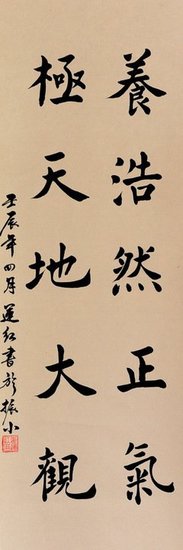 養浩然正氣
極天地大觀
壬辰年四月蓮紅書於振小